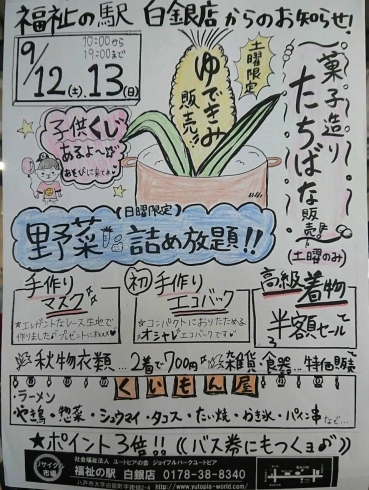 福祉の駅 白銀店からのお知らせ!
9/12(土).13(日)
10:00から
19:00まで
土曜限定
ゆできみ
販売!!
菓子造り
たちばな
販売
(土曜のみ)
子供くじ
あるよ〜
あそびに来てネ♡
(日曜限定)
野菜詰め放題!!
手作り
マスク
☆エレガントなレース生地で
作りました♪プレゼントに
初 手作り
エコバック
☆コンパクトにおりたためる
オシャレエコバックです♡
高級着物
半額セール
秋物衣類…2着で700円 雑貨・食器…特価販売
くいもん屋
・ラーメン
・やき鶏・惣菜・シュウマイ・タコス・たい焼・かき氷・パイン串 など…
★ポイント3倍!!《バス券にもつくョ♪》
リサイクル市場
社会福祉法人 ユートピアの会 ジョイフルパークユートピア
福祉の駅 白銀店 0178-38-8340
http://www.yutopia-world.com/